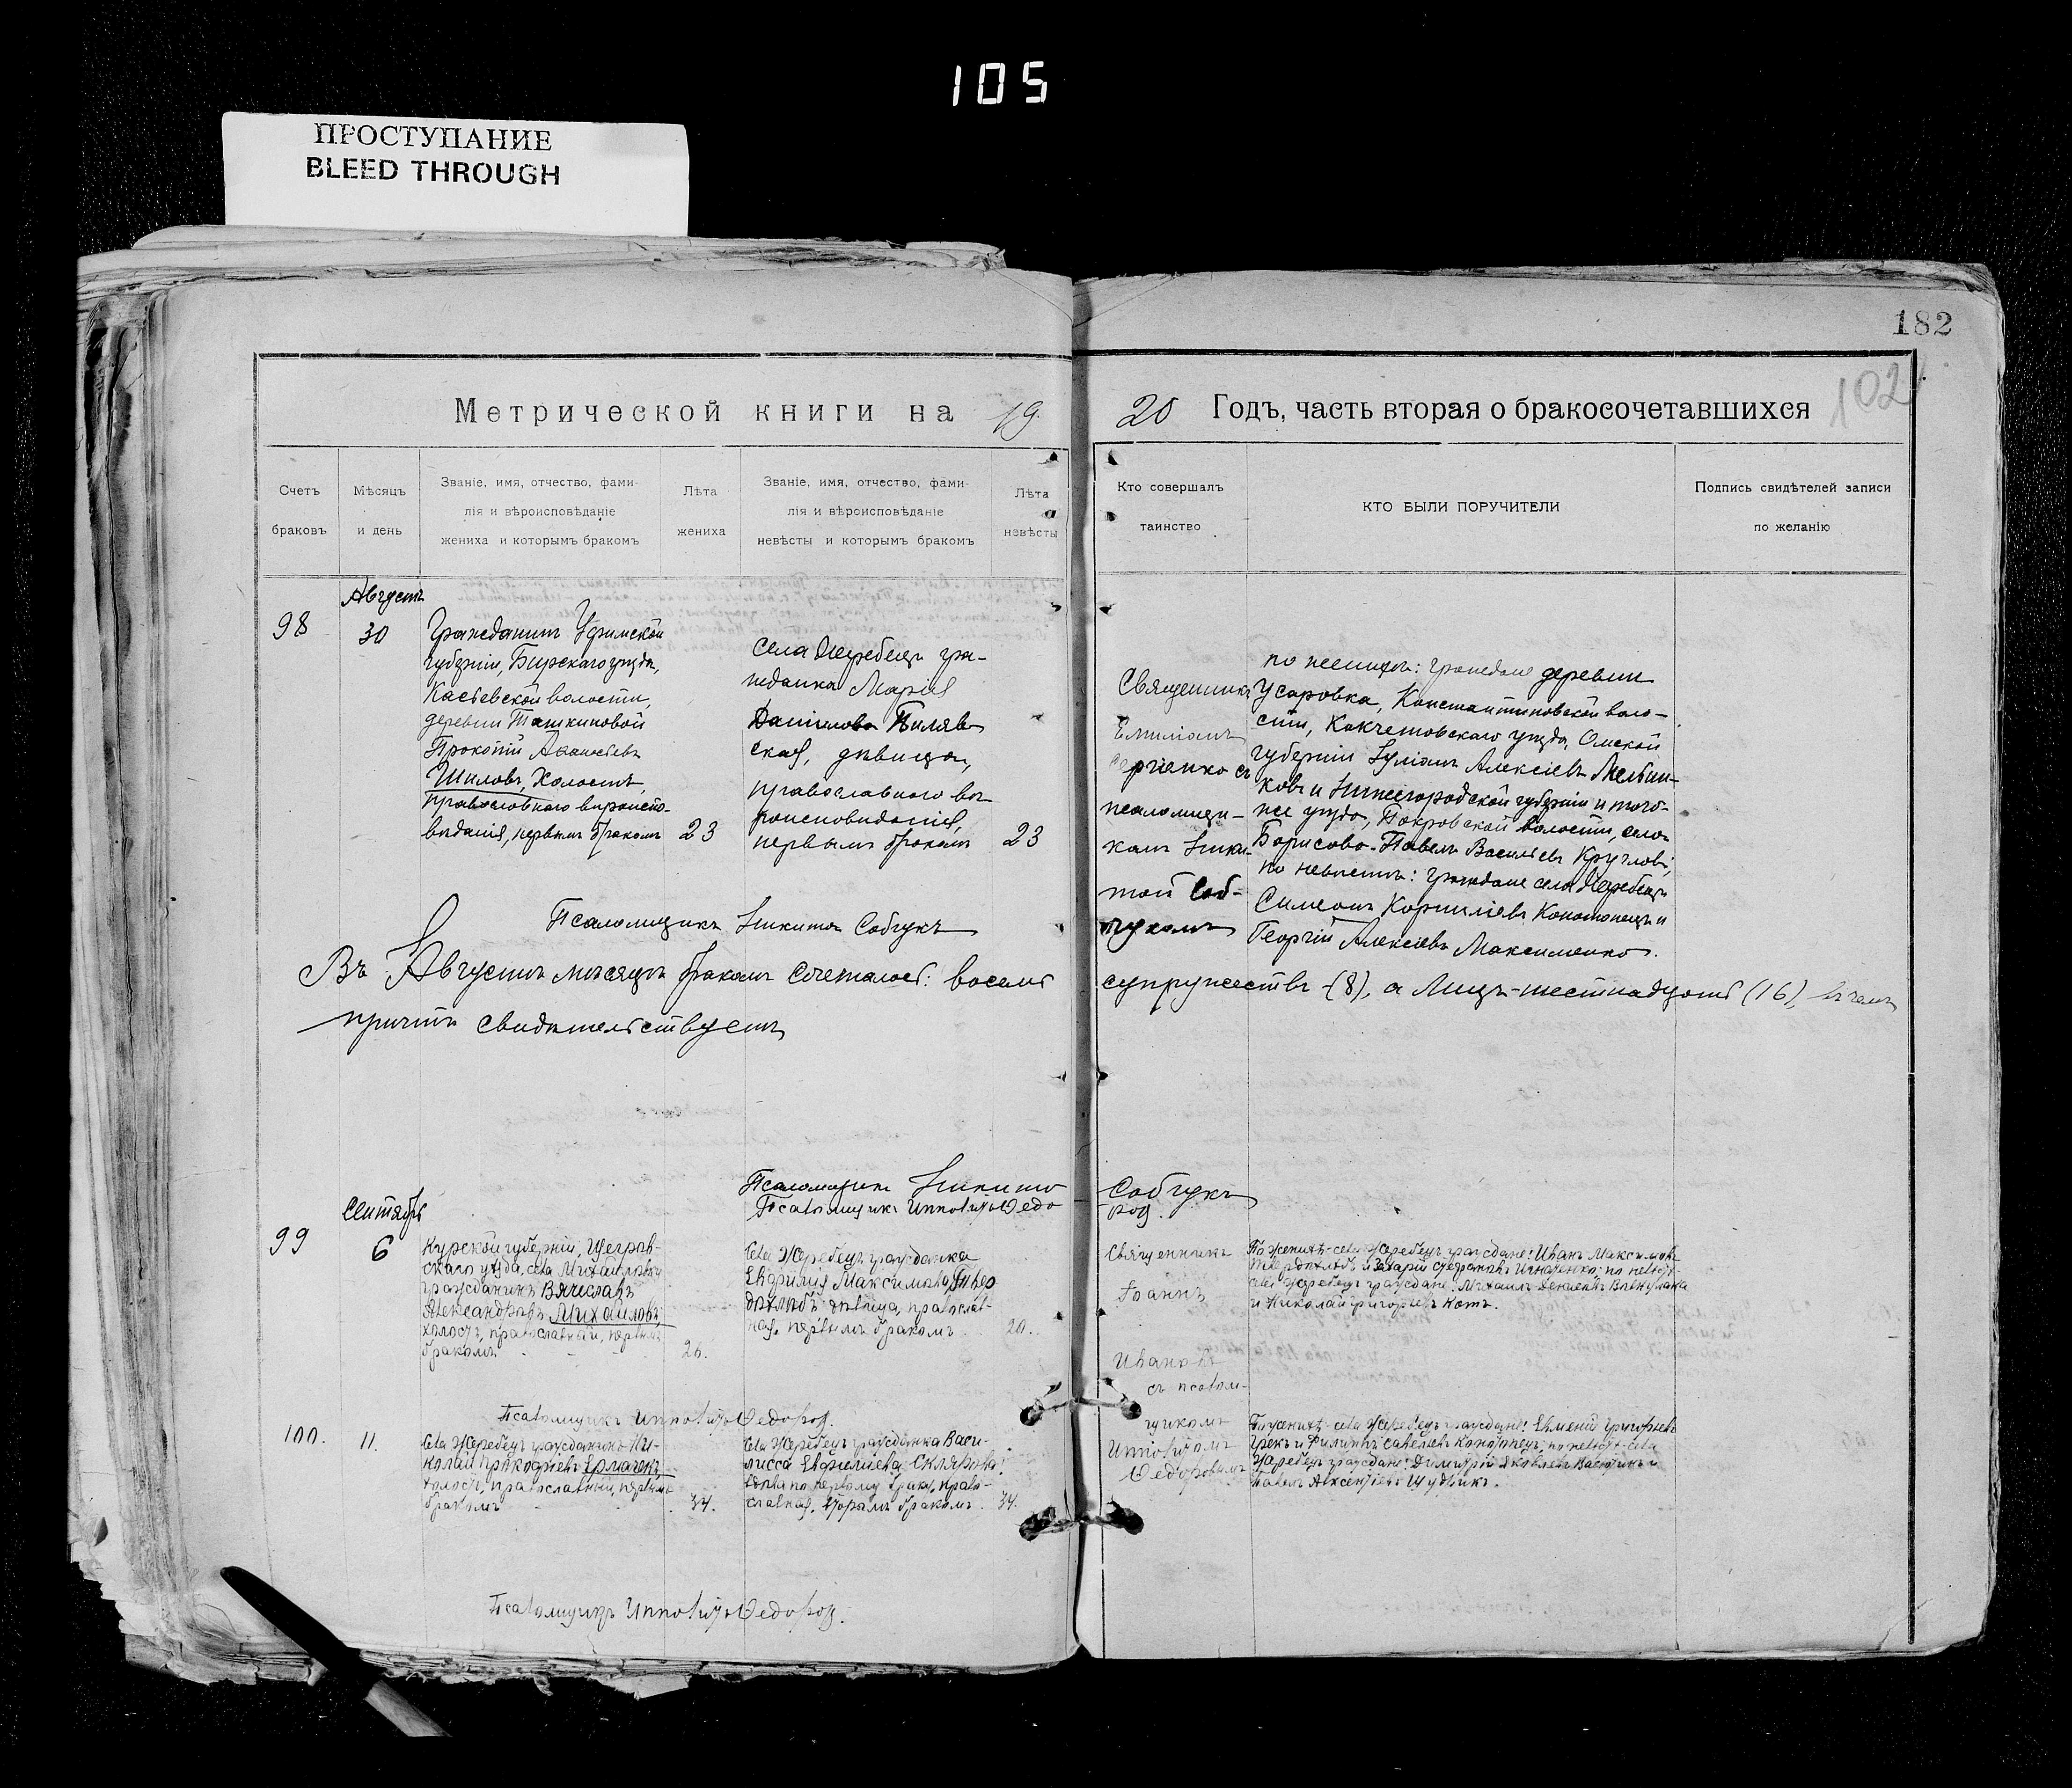 105
ПРОСТУПАНИЕ
BLEED THROUGH
182
102
Метрической книги на 19
20 Годъ, часть вторая о бракосочетавшихся
Счетъ
браковъ
Мѣсяцъ
и день
Званіе, имя, отчество, фами-
лія и вѣроисповѣданіе
жениха и которымъ бракомъ
Лѣта
жениха
Званіе, имя, отчество, фами-
лія и вѣроисповѣданіе
невѣсты и которымъ бракомъ
Лѣта
невѣсты
Кто совершалъ
таинство
КТО БЫЛИ ПОРУЧИТЕЛИ
Подпись свидѣтелей записи
по желанію
98
Августъ
30
Гражданинъ Уфимской
губерніи, Бирскаго уѣзда,
волости,
деревни Ташкиновой
Прокопій
Шиловъ, холостъ,
православнаго вѣроиспо-
вѣданія, первымъ бракомъ
23
Села Жеребецъ гра-
жданка Марія
Даніилова Биляв-
ская, дѣвица,
православнаго вѣ-
роисповѣданія,
первымъ бракомъ
23
Священникъ
Емиліанъ
съ
псаломщи-
комъ Ники-
той Соб-
чукомъ
по женихѣ: граждане деревни
Усаровка, Константиновской воло-
сти, Кокчетовскаго уѣзда, Омской
губерніи Іуліанъ Алексіевъ
ковъ и Нижегородской губерніи и того-
же уѣзда, Покровской волости, села
Борисово-Павелъ Василіевъ Кругловъ;
по невѣстѣ: граждане села Жеребецъ
Симеонъ Корниліевъ Кономонецъ и
Георгій Алексіевъ Максименко.
Псаломщикъ Никита Собчукъ
Въ Августѣ мѣсяцѣ бракомъ сочеталось: восемь
супружествъ-(8), а лицъ-шестнадцать (16), въ чемъ
причтъ свидѣтельствуетъ
Псаломщикъ Никита
Собчукъ
Псаломщикъ Ипполитъ Ѳедо
ровъ
99
Сентябрь
6
Курской губерніи, Щегров-
скаго уѣзда, села Михайловки
гражданинъ Вячеславъ
Александровъ Михайловъ,
холостъ, православный, первымъ
бракомъ
26.
Села Жеребецъ гражданка
Евфимія Максимова Твер
дохлѣбъ дѣвица, православ-
ная, первымъ бракомъ
20.
Священникъ
Іоаннъ
Ивановъ
съ псалом-
щикомъ
Ипполитомъ
Ѳедоровымъ
По женихѣ-села Жеребецъ граждане: Иванъ Максимовъ
Твердохлѣбъ и Захарій Стефановъ Игнатенко; по невѣстѣ-
села Жеребецъ граждане: Михаилъ
и Николай Григорьевъ Котъ.
Псаломщикъ Ипполитъ Ѳедоровъ.
100.
11.
Села Жеребецъ гражданинъ Ни-
колай Прокофіевъ Ермаченъ
холостъ, православный, первымъ
бракомъ
34.
Села Жеребецъ гражданка Васи-
лисса Евфиміева Склярова,
вдова по первому браку, право-
славная, вторымъ бракомъ
34.
По женихѣ-села Жеребецъ граждане: Евменій Григорьевъ
Грекъ и Филиппъ Савельевъ Конотопецъ, по невѣстѣ-села
Жеребецъ граждане: Димитрій Яковлевъ и
Павелъ Авксентіевъ
Псаломщикъ Ипполитъ Ѳедоровъ.